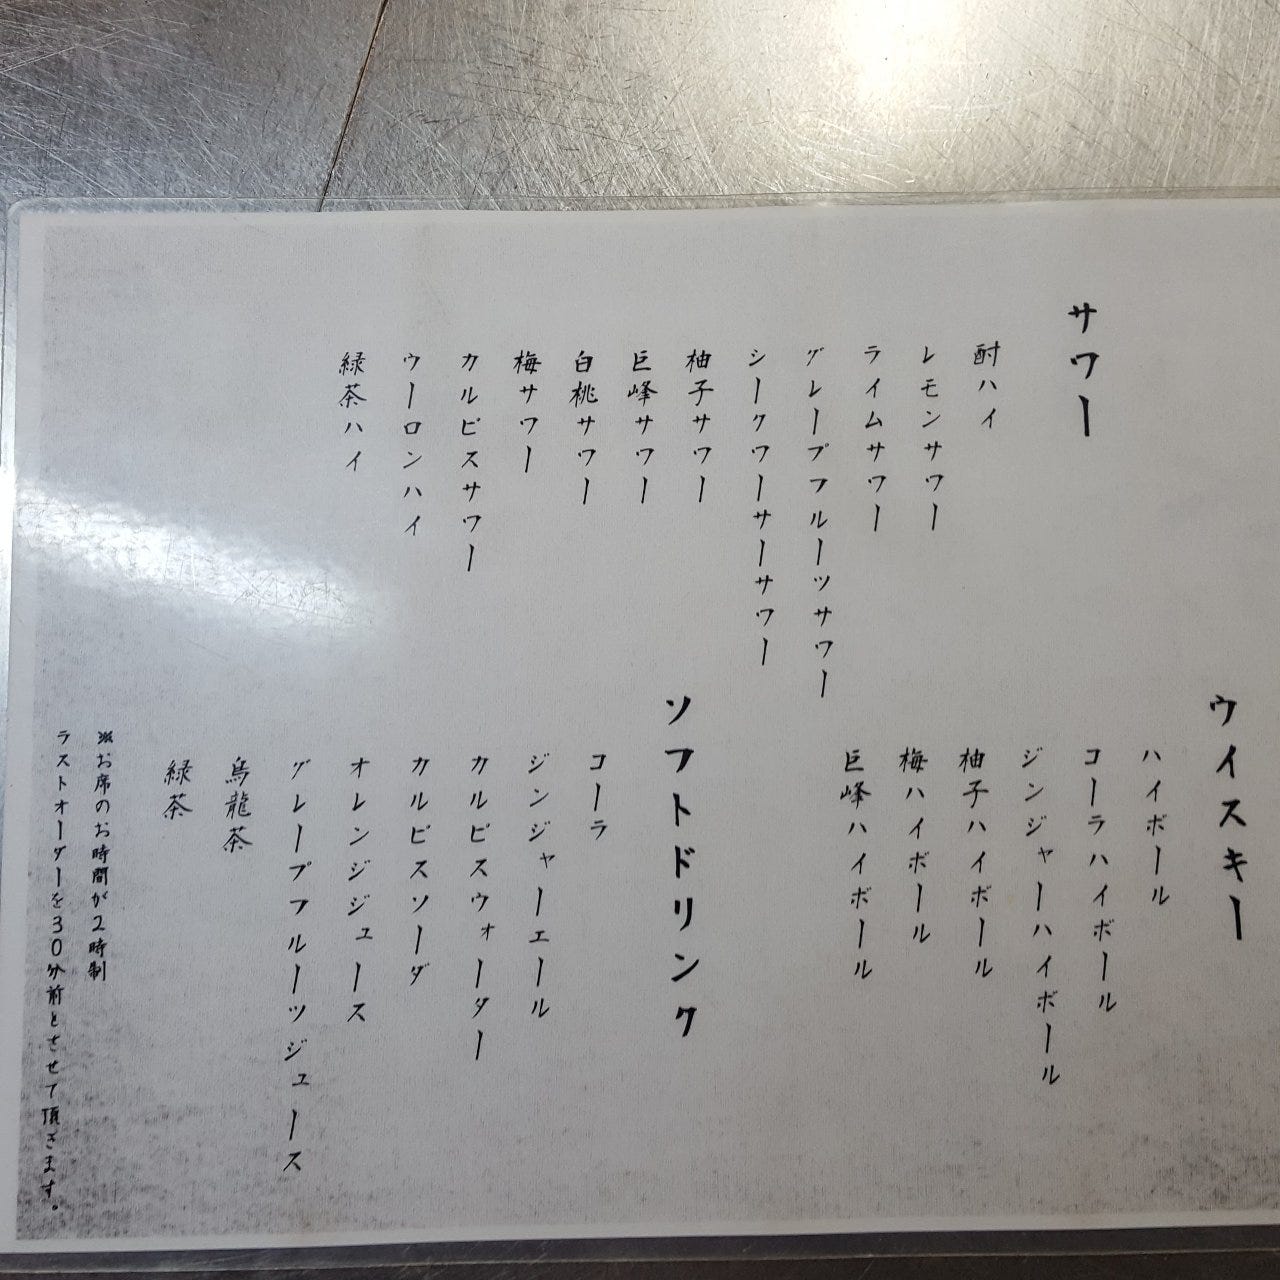 サワー
酎ハイ
レモンサワー
ライムサワー
グレープフルーツサワー
シークワーサーサワー
柚子サワー
巨峰サワー
白桃サワー
梅サワー
カルピスサワー
ウーロンハイ
緑茶ハイ
ウイスキー
ハイボール
コーラハイボール
ジンジャーハイボール
柚子ハイボール
梅ハイボール
巨峰ハイボール
ソフトドリンク
コーラ
ジンジャーエール
カルピスウォーター
カルピスソーダ
オレンジジュース
グレープフルーツジュース
烏龍茶
緑茶
※お席のお時間が2時制
ラストオーダーを30分前とさせて頂きます。